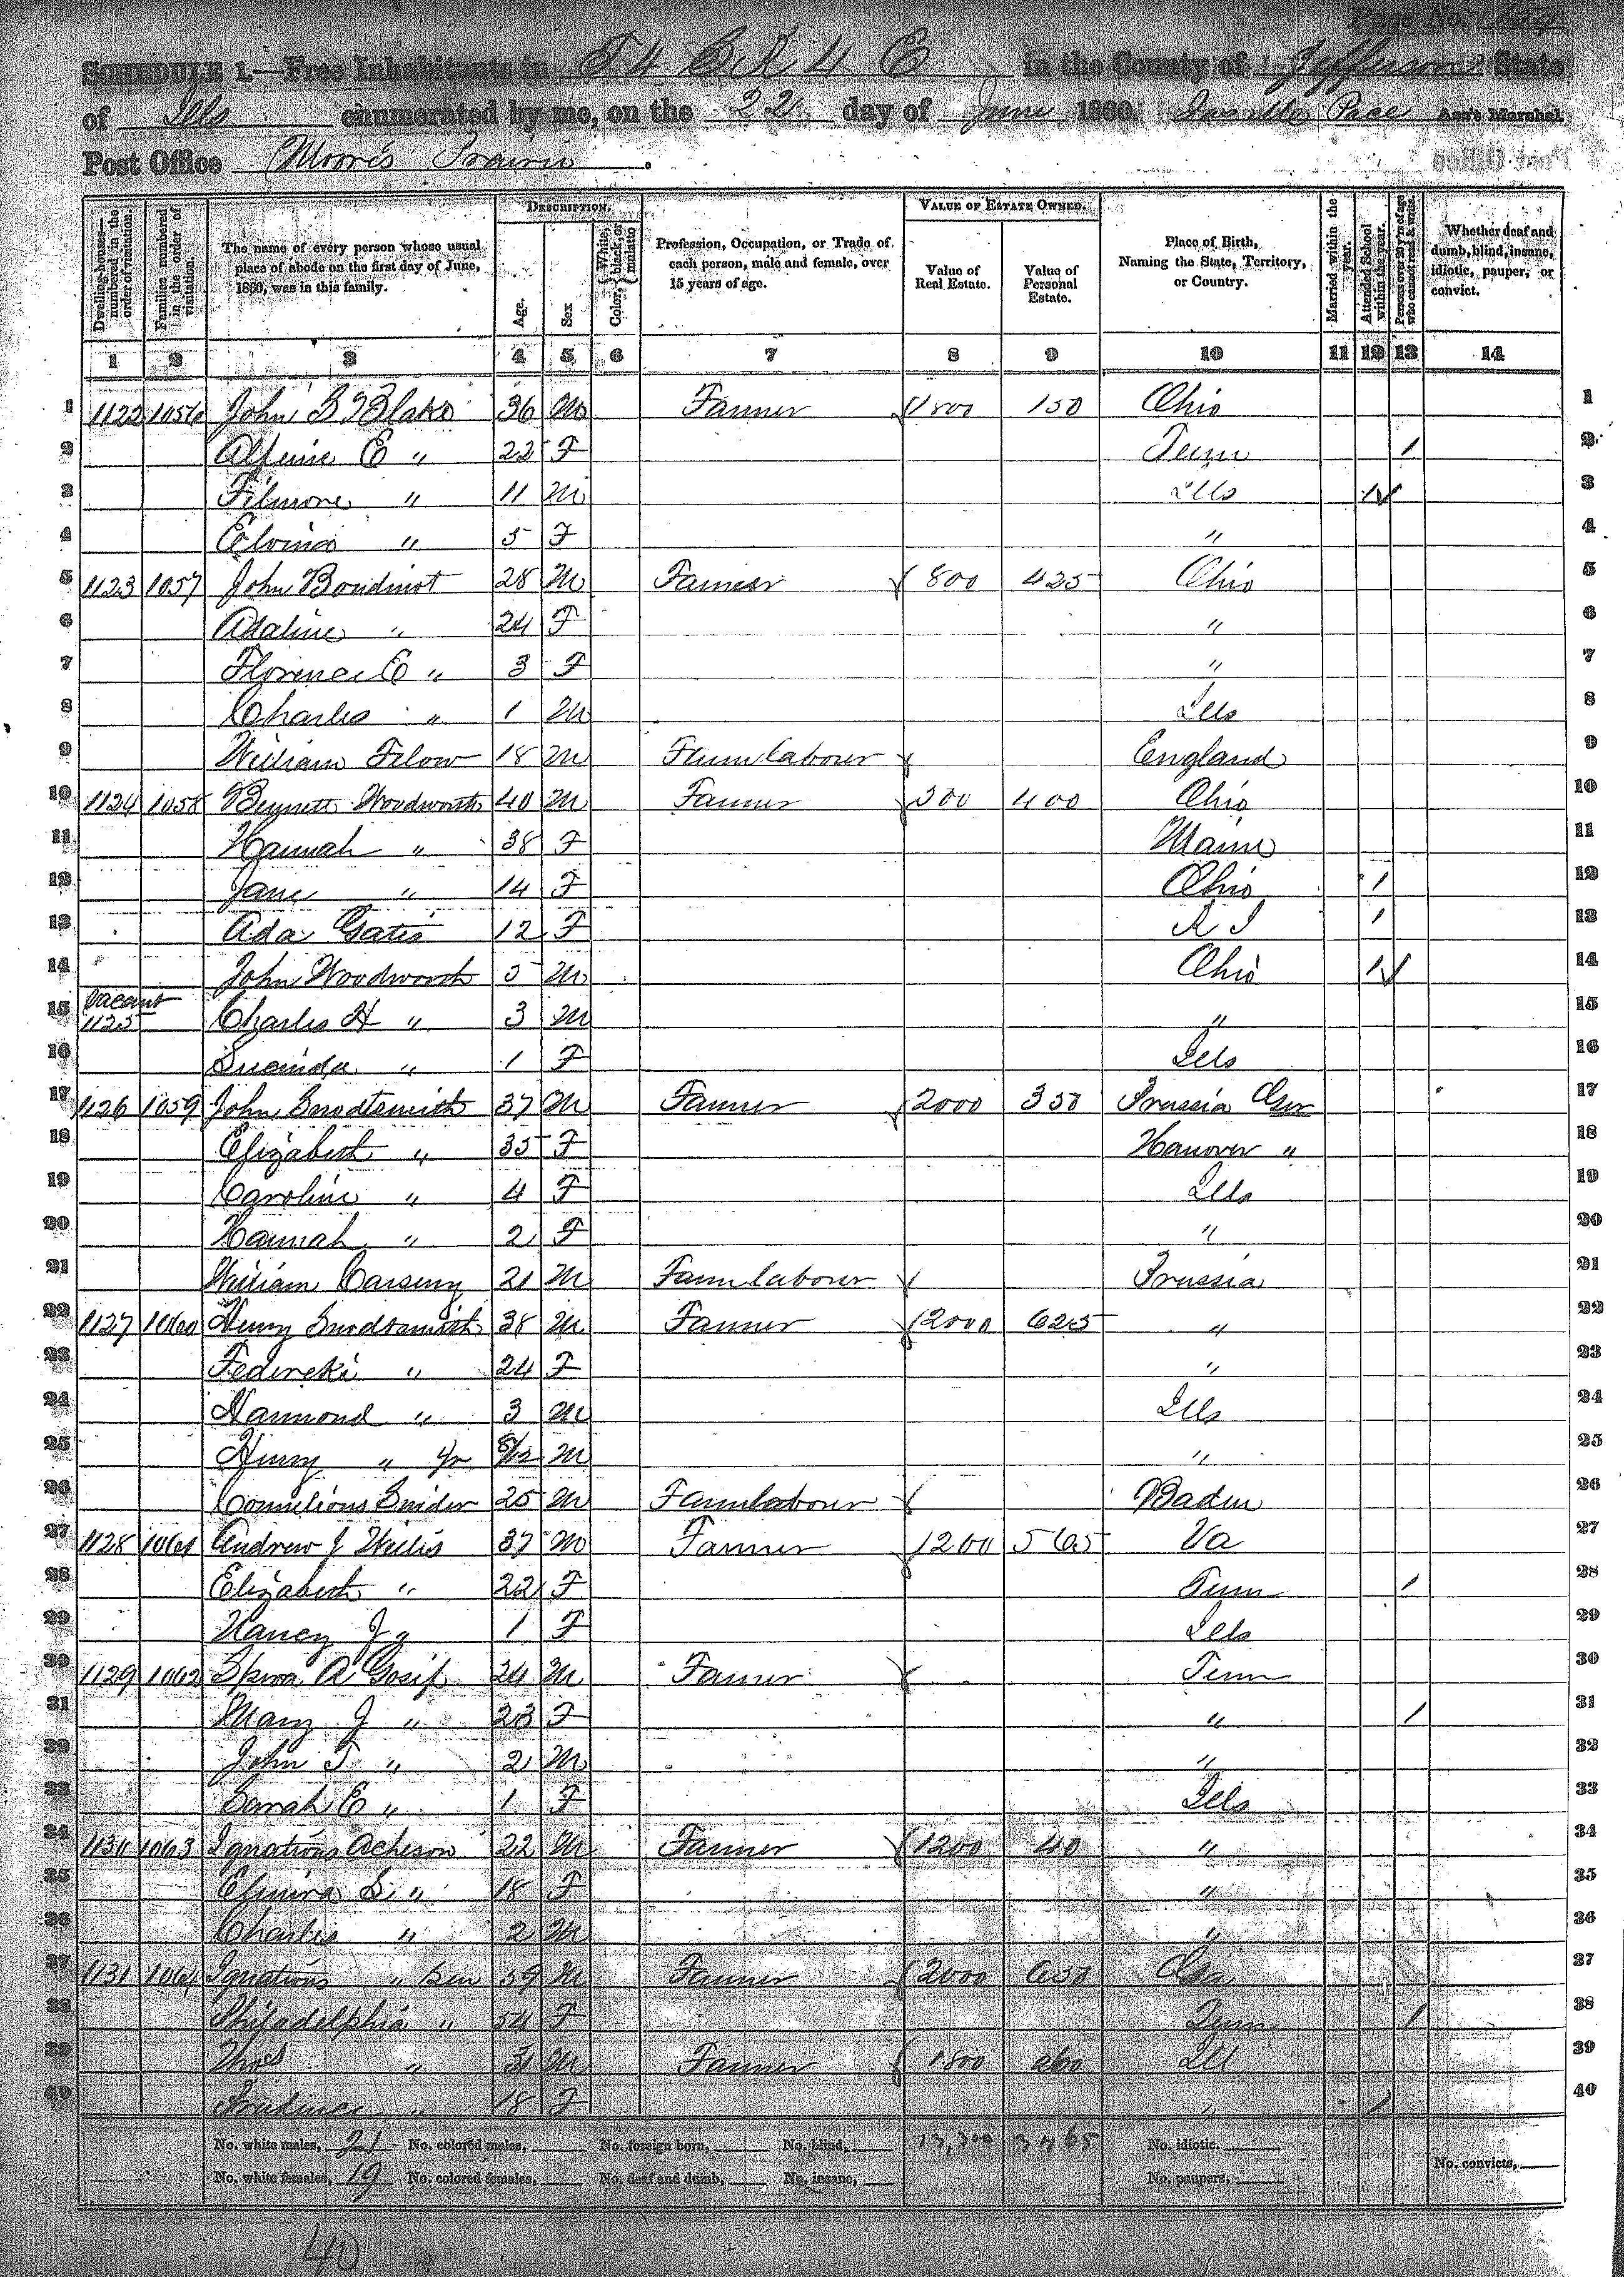 Page No. 154
SCHEDULE 1.—Free Inhabitants in T 4 S R 4 E in the County of Jefferson State
of Ills enumerated by me, on the 22 day of June 1860. Pace Ass't Marshal
Post Office Moores Prairie.
DESCRIPTION. VALUE OF ESTATE OWNED.
Dwelling-houses—numbered in the order of visitation. Families numbered in the order of visitation. The name of every person whose usual place of abode on the first day of June, 1860, was in this family. Age. Sex Color, White, black, or mulatto Profession, Occupation, or Trade of each person, male and female, over 15 years of age. Value of Real Estate. Value of Personal Estate. Place of Birth, Naming the State, Territory, or Country. Married within the year. Attended School within the year. Persons over 20 y'rs of age who cannot read & write. Whether deaf and dumb, blind, insane, idiotic, pauper, or convict.
1 2 3 4 5 6 7 8 9 10 11 12 13 14
1 1122 1056 John B Blake 36 M Farmer 1800 150 Ohio 1
2 E " 22 F Tenn / 2
3 Filmore " 11 M Ills 1 3
4 Elvina " 5 F " 4
5 1123 1057 John Boudinot 28 M Farmer 800 425 Ohio 5
6 Adaline " 24 F " 6
7 Florence E " 3 F " 7
8 Charles " 1 M Ills 8
9 William Filow 18 M Farm labourer England 9
10 1124 1058 Bennett Woodworth 40 M Farmer 300 400 Ohio 10
11 Hannah " 38 F Maine 11
12 Jane " 14 F Ohio / 12
13 Ada Gates 12 F R I / 13
14 John Woodworth 5 M Ohio 1 14
15 Vacant 1125 Charles H " 3 M " 15
16 Lucinda " 1 F Ills 16
17 1126 1059 John Snodtsmith 37 M Farmer 2000 350 Prussia Ger 17
18 Elizabeth " 35 F Hanover " 18
19 Caroline " 4 F Ills 19
20 Hannah " 2 F " 20
21 William 21 M Farm labourer Prussia 21
22 1127 1060 Henry Snodtsmith 38 M Farmer 2000 625 " 22
23 Federeki " 24 F " 23
24 Harmond " 3 M Ills 24
25 Henry " Jr 8/12 M " 25
26 Cornelious Snider 25 M Farm labourer Baden 26
27 1128 1061 Andrew J Willis 37 M Farmer 1200 565 Va 27
28 Elizabeth " 22 F Tenn / 28
29 Nancy J " 1 F Ills 29
30 1129 1062 A Gosip 24 M Farmer Tenn 30
31 Mary J " 23 F " / 31
32 John T " 2 M " 32
33 Sarah E " 1 F Ills 33
34 1130 1063 Ignatious Acheson 22 M Farmer 1200 40 " 34
35 Elmira S " 18 F " 35
36 Charles " 2 M " 36
37 1131 1064 Ignatious " Sen 59 M Farmer 2000 650 Ga 37
38 Philadelphia " 54 F Tenn / 38
39 Thos " 31 M Farmer 1800 260 Ill 39
40 Prudence " 18 F " / 40
No. white males, 21 No. colored males, No. foreign born, No. blind, 13,300 3465 No. idiotic.
No. white females, 19 No. colored females, No. deaf and dumb, No. insane, No. paupers, No. convicts,
40